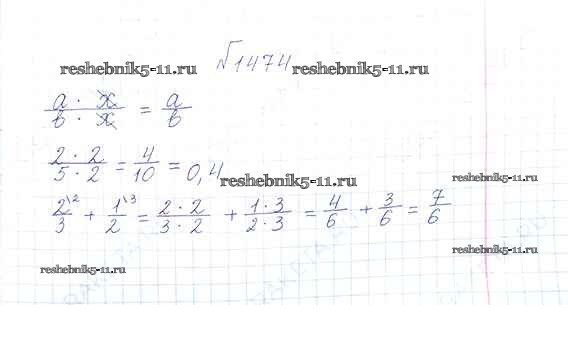 √1474
reshebnik5-11.ru reshebnik5-11.ru
a · x / b · x = a / b
2 · 2 / 5 · 2 = 4 / 10 = 0,4
reshebnik5-11.ru reshebnik5-11.ru
2\2 / 3 + 1\3 / 2 = 2 · 2 / 3 · 2 + 1 · 3 / 2 · 3 = 4 / 6 + 3 / 6 = 7 / 6
reshebnik5-11.ru
reshebnik5-11.ru